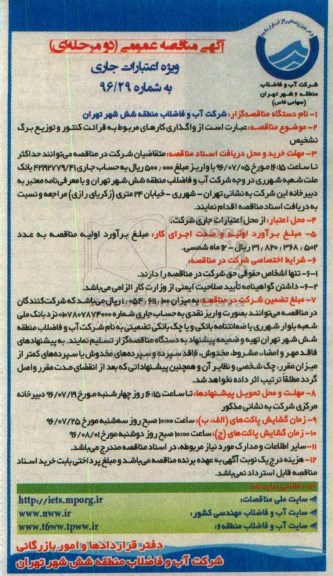 شرکت آب و فاضلاب
منطقه ۶ شهر تهران
(سهامی خاص)
آگهی مناقصه عمومی (دو مرحله‌ای)
ویژه اعتبارات جاری
به شماره ۹۶/۲۹
۱- نام دستگاه مناقصه‌گزار: شرکت آب و فاضلاب منطقه شش شهر تهران
۲- موضوع مناقصه: عبارت است از واگذاری کارهای مربوط به قرائت کنتور و توزیع برگ
تشخیص
۳- مهلت خرید و محل دریافت اسناد مناقصه: متقاضیان شرکت در مناقصه می‌توانند حداکثر
تا ساعت ۱۶:۱۵ مورخ ۹۶/۰۷/۰۵ با واریز مبلغ ۵۰۰,۰۰۰ ریال به حساب جاری ۴۲۹۲۷۷۹/۴۱ بانک
ملت شعبه شهرری در وجه شرکت آب و فاضلاب منطقه شش شهر تهران و با معرفی‌نامه معتبر به
دبیرخانه این شرکت به نشانی تهران - شهرری - خیابان ۲۴ متری (زکریای رازی) مراجعه و نسبت
به دریافت اسناد مناقصه اقدام نمایند.
۴- محل اعتبار: از محل اعتبارات جاری شرکت.
۵- مبلغ برآورد اولیه و مدت اجرای کار: مبلغ برآورد اولیه مناقصه به عدد
۳۱,۸۲۰,۳۶۸,۵۰۲ ریال - ۱۲ ماه شمسی.
۶- شرایط اختصاصی شرکت در مناقصه:
۶-۱- تنها اشخاص حقوقی حق شرکت در مناقصه را دارند.
۶-۲- داشتن گواهینامه تأیید صلاحیت ایمنی از وزارت کار الزامی می‌باشد.
۷- مبلغ تضمین شرکت در مناقصه: به میزان ریال می‌باشد که شرکت‌کنندگان
در مناقصه می‌توانند بصورت واریز نقدی به حساب جاری شماره نزد بانک ملی
شعبه بلوار شهرری یا ضمانتنامه بانکی و یا چک بانکی تضمینی به نام شرکت آب و فاضلاب منطقه
شش شهر تهران تهیه و ضمیمه پیشنهاد به دستگاه مناقصه‌گزار تسلیم نمایند. به پیشنهادهای
فاقد مهر و امضاء، مشروط، مخدوش، فاقد سپرده و سپرده‌های مخدوش یا سپرده‌های کمتر از
میزان مقرر، چک شخصی و نظایر آن و همچنین پیشنهاداتی که بعد از انقضای مدت مقرر واصل
گردد مطلقاً ترتیب اثر داده نخواهد شد.
۸- مهلت و محل تحویل پیشنهادها: تا ساعت ۱۶:۱۵ روز چهارشنبه مورخ ۹۶/۰۷/۱۹ دبیرخانه
مرکزی شرکت به نشانی مذکور
۹- زمان گشایش پاکت‌های (الف، ب): ساعت ۱۰:۰۰ صبح روز سه‌شنبه مورخ ۹۶/۰۷/۲۵
۱۰- زمان گشایش پاکت‌های (ج): ساعت ۱۰:۰۰ صبح روز دوشنبه مورخ ۹۶/۰۸/۰۱
۱۱- سایر اطلاعات و مدارک مورد نیاز مربوطه، در اسناد مناقصه مندرج می‌باشد.
۱۲- هزینه درج یک نوبت آگهی به عهده برنده مناقصه می‌باشد و مبلغ پرداختی بابت خرید اسناد
مناقصه قابل استرداد نمی‌باشد.
سایت ملی مناقصات: http://iets.mporg.ir
سایت آب و فاضلاب مهندسی کشور: www.nww.ir
سایت آب و فاضلاب منطقه ۶: www.t6ww.tpww.ir
دفتر قراردادها و امور بازرگانی
شرکت آب و فاضلاب منطقه شش شهر تهران